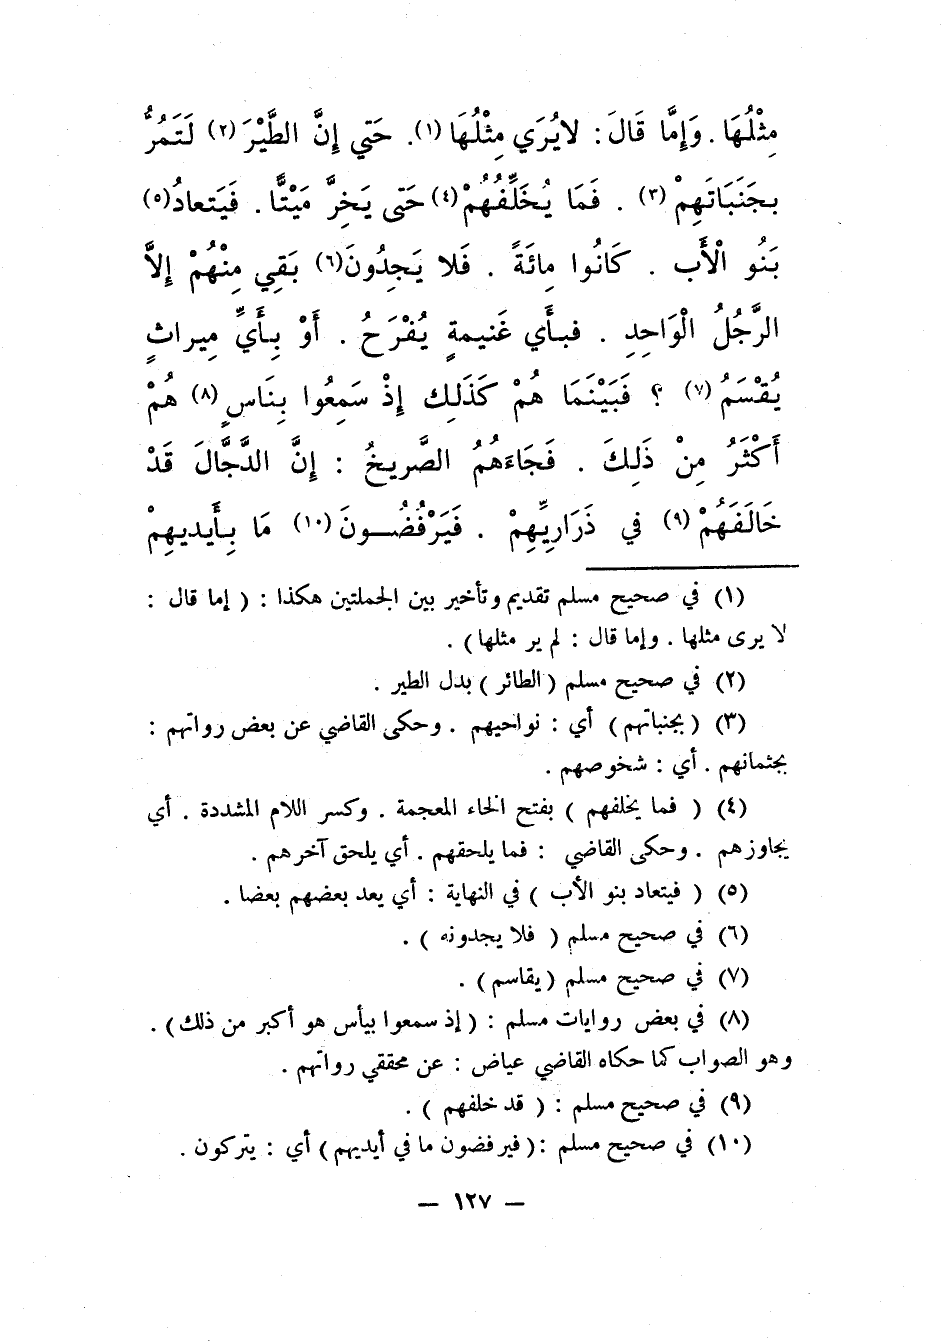 مِثْلُهَا . وَإِمَّا قَالَ : لايُرَي مِثْلُهَا (١). حَتي إِنَّ الطَّيْرَ (٢) لَتَمُرُّ
بجَنَبَاتَهِمْ (٣) . فَمَا يُخَلِّفُهُمْ (٤) حَتى يَخِرَّ مَيْتًّا . فَيَتعادُ (٥)
بَنُو الْأَب . كَانُوا مِائَةً . فَلا يَجِدُونَ (٦) بَقِي مِنْهُمْ إِلاَّ
الرَّجُلُ الْوَاحِدِ . فبأَي غَنيمةٍ يُفْرَحُ . أَوْ بِأَيِّ مِيراثٍ
يُقْسَمُ (٧) ؟ فَبَيْنَمَا هُمْ كَذَلِك إِذْ سَمِعُوا بِنَاسٍ (٨) هُمْ
أَكْثَرُ مِنْ ذَلِكَ . فَجَاءَهُمُ الصَّرِيخُ : إِنَّ الدَّجَّالَ قَدْ
خَالَفَهُمْ (٩) في ذَرَارِيِّهِمْ . فَيَرْفُضُـــونَ (١٠) مَا بِأَيديهِمْ
(١) في صحيح مسلم تقديم وتأخير بين الجملتين هكذا : ( إما قال :
لا يرى مثلها . وإما قال : لم ير مثلها) .
(٢) في صحيح مسلم (الطائر ) بدل الطير .
(٣) ( بجنباتهم ) أي : نواحيهم . وحكى القاضي عن بعض رواتهم :
بجثمانهم . أي : شخوصهم .
(٤) ( فما يخلفهم ) بفتح الخاء المعجمة . وكسر اللام المشددة . أي
يجاوزهم . وحكى القاضي : فما يلحقهم . أي يلحق آخرهم .
(٥) ( فيتعاد بنو الأب ) في النهاية : أي يعد بعضهم بعضا .
(٦) في صحيح مسلم ( فلا يجدونه ) .
(٧) في صحيح مسلم (يقاسم ) .
(٨) في بعض روايات مسلم : ( إذ سمعوا ببأس هو أكبر من ذلك ) .
وهو الصواب كما حكاه القاضي عياض : عن محققي رواتهم .
(٩) في صحيح مسلم : ( قد خلفهم ) .
(١٠) في صحيح مسلم : ( فيرفضون ما في أيديهم ) أي : يتركون .
— ١٢٧ —